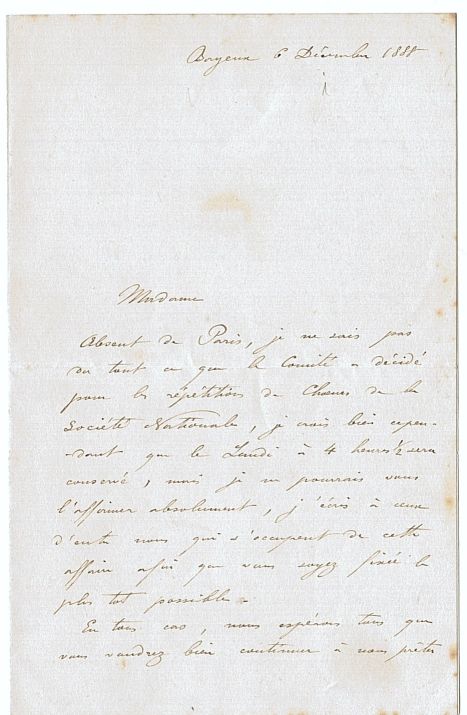 Bayeux 6 Décembre 1888
Madame
Absent de Paris, je ne sais pas
du tout ce que le Comité a décidé
pour les répétitions de Choeurs de la
Société Nationale, je crois bien cepen-
-dant que le Lundi à 4 heures 1/2 sera
conservé, mais je ne pourrais vous
l'affirmer absolument, j'écris à ceux
d'entre nous qui s'occupent de cette
affaire afin que vous soyez fixée le
plus tot possible.
En tous cas, nous espérons tous que
vous voudrez bien continuer à nous prêter